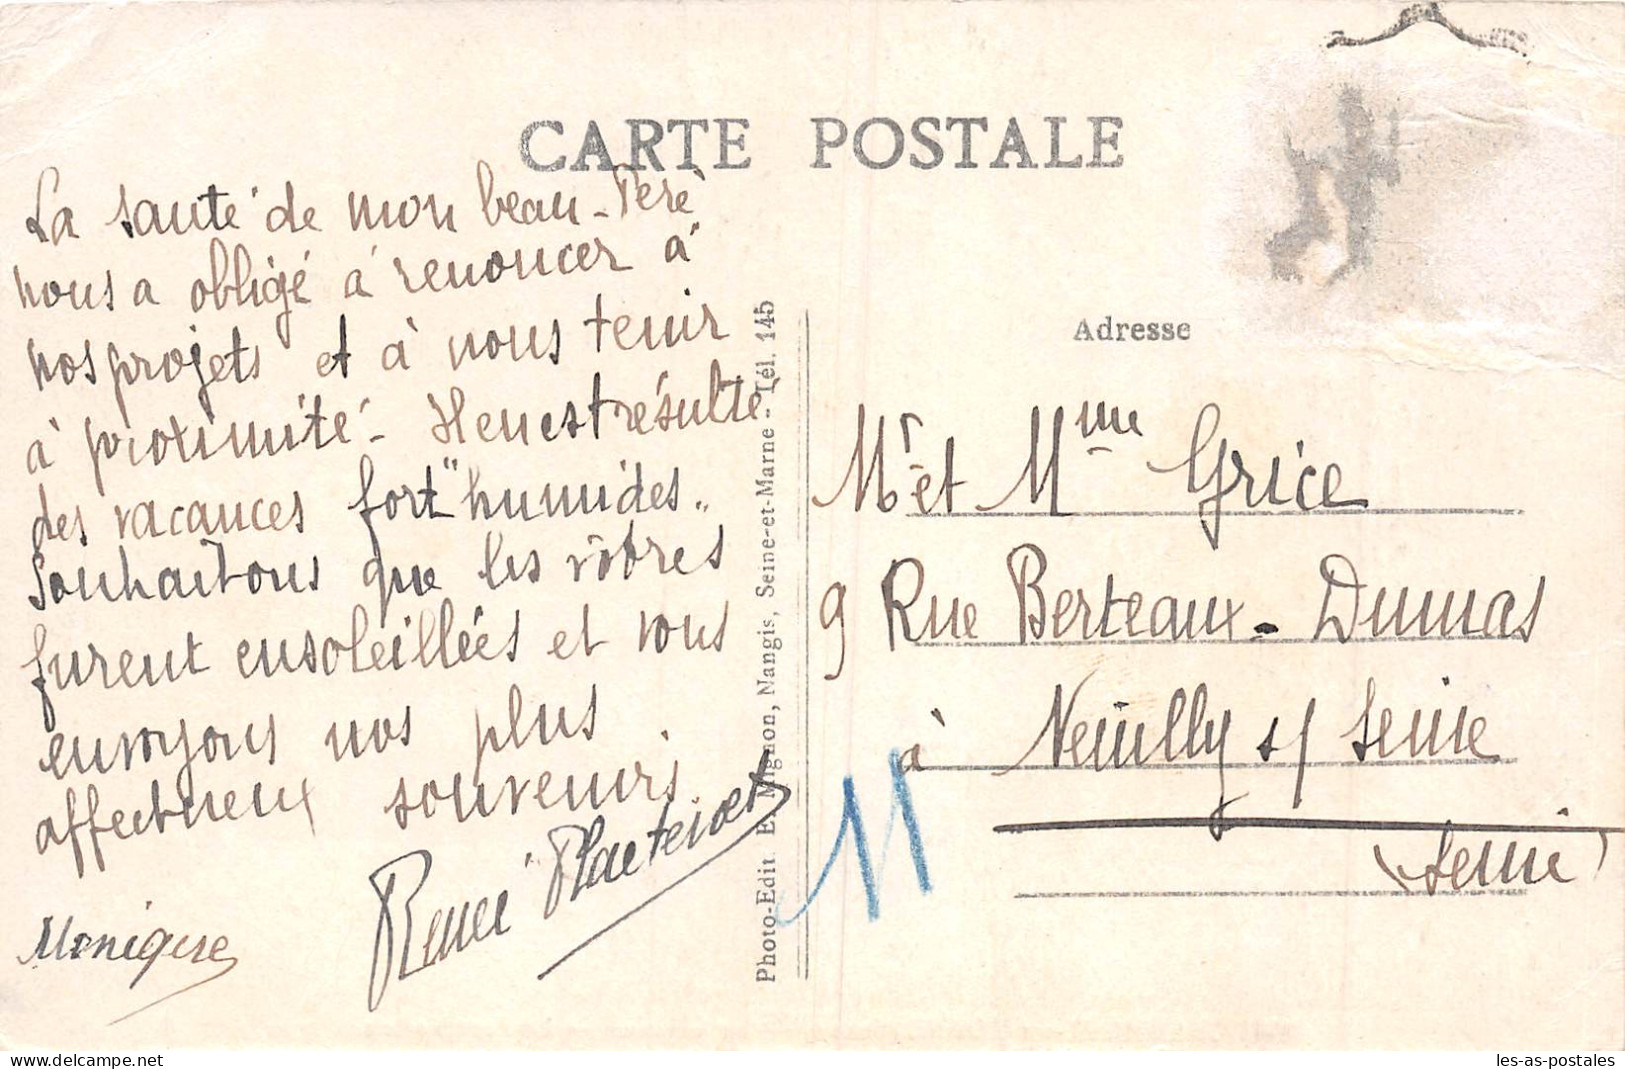 CARTE POSTALE
La santé de mon beau-Père
nous a obligé à renoncer à
nos projets et à nous tenir
à proximité - Il en est résulté
des vacances fort "humides"
Souhaitons que les vôtres
furent ensoleillées et vous
envoyons nos plus
affectueux souvenirs.
Monique
Photo-Edit. E. Mignon, Nangis, Seine-et-Marne - Tél. 145
Adresse
Mr et Mme Grice
9 Rue Berteaux-Dumas
à Neuilly s/ Seine
(Seine)
les-as-postales